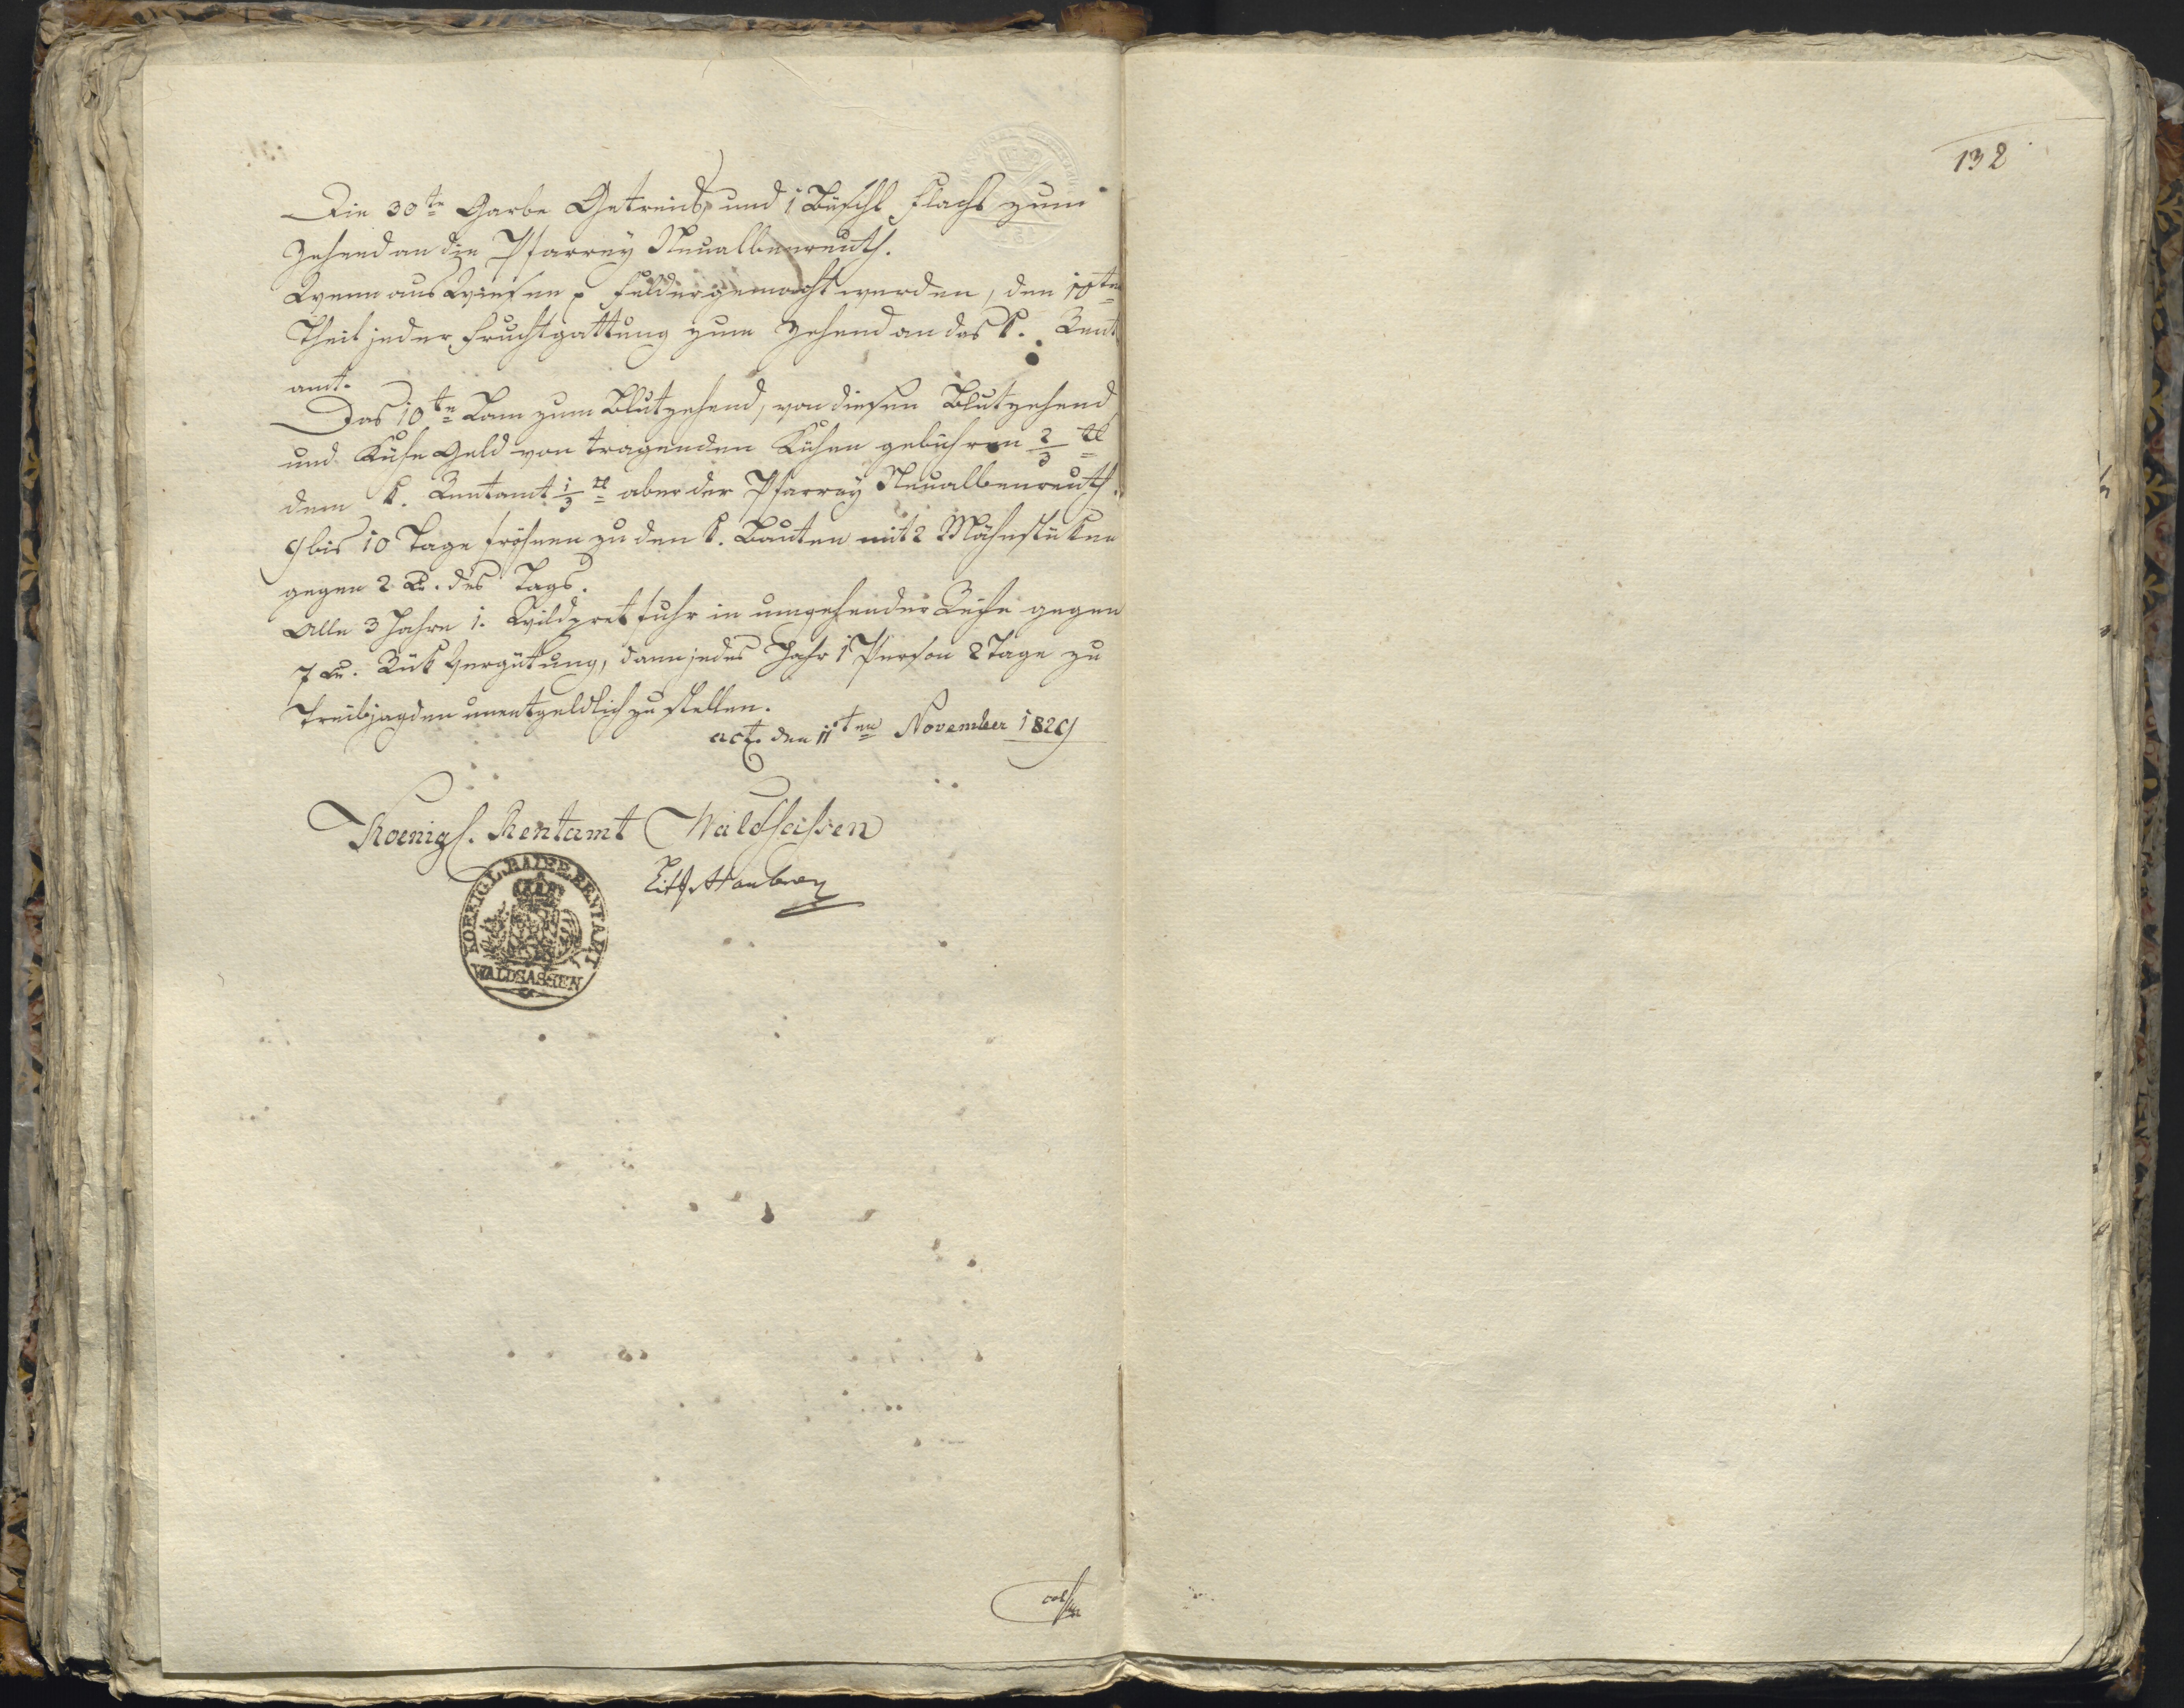 Die 30te Garbe Getreids, und 1 Büschl Flachs zum
Zehend an die Pfarrey Neualbenreuth.
Wenn aus Wiesen Felder gemacht werden, den 10ten
Theil jeder Fruchtgattung zum Zehend an das k. Rent
amt.
Das 10te Lam zum Blutzehend, von diesem Blutzehend
und Kühe Geld von tragenden Kühen gebühren 2/3 tl
dem k. Rentamt 1/3 tl aber der Pfarrey Neualbenreuth.
9 bis 10 Tage fröhnen zu den k. Bauten mit 2 Mähnstüken
gegen 2 Kr. des Tags.
Alle 3 Jahre 1. Wildpretfuhr in umgehender Reihe gegen
7 Kr. Rük Vergütung, dann jedes Jahr 1 Person 2 Tage zu
Treibjagden unentgeldlich zu stellen.
act. den 11ten November 1829
Koenigl. Rentamt Waldsassen
KOENIGL. BAIER. RENTAMT
WALDSASSEN
132